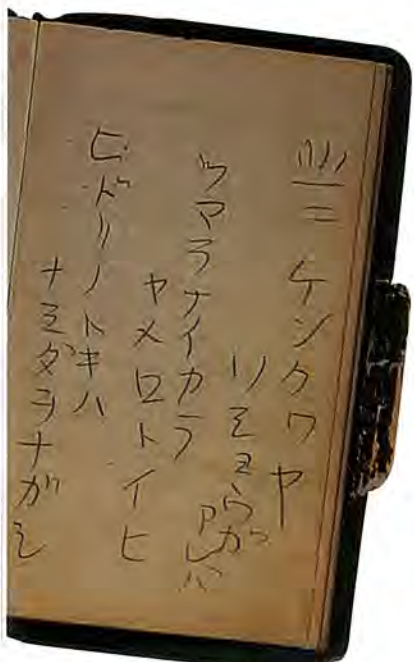 北ニケンクワヤ
ソシヨウガアレバ
ツマラナイカラ
ヤメロトイヒ
ヒドリノトキハ
ナミダヲナガシ